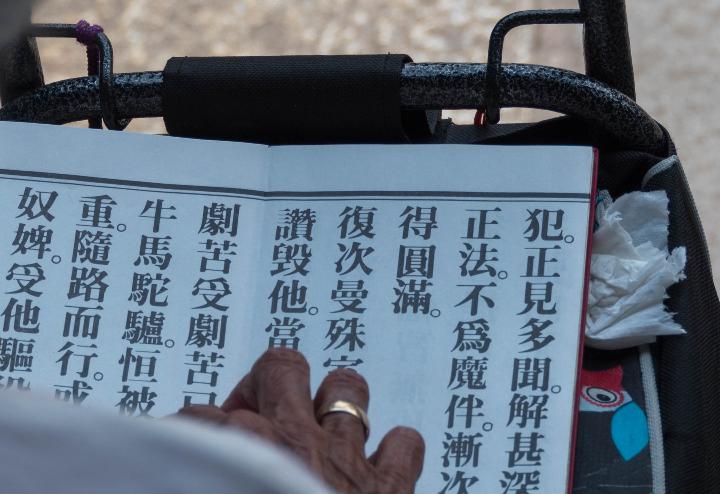 犯。正見多聞。解甚深
正法。不爲魔伴。漸次
得圓滿。
復次曼殊室
讚毀他。當
劇苦受劇苦已
牛馬駝驢。恒被
重。隨路而行。或
奴婢。受他驅